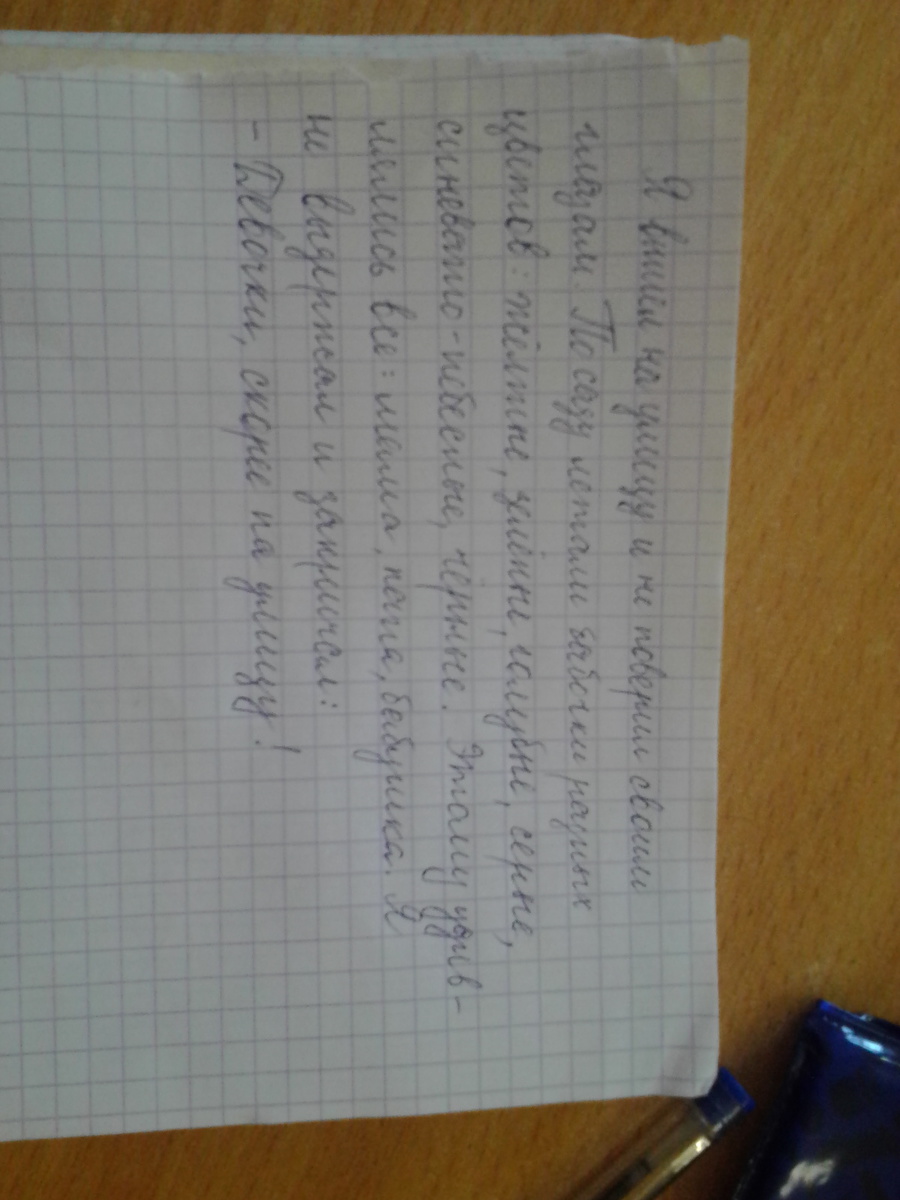 Я вышел на улицу и не поверил своим
глазам. По саду летали бабочки разных
цветов: жёлтые, зелёные, голубые, серые,
синевато-небесные, чёрные. Этому удив-
лялись все: мама, папа, бабушка. Я
не выдержал и закричал:
- Девочки, скорее на улицу!